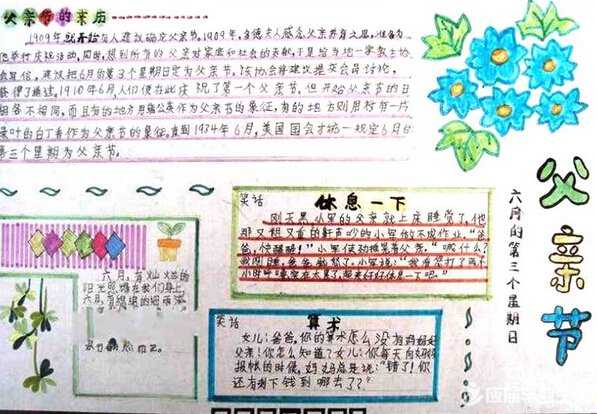 父亲节的来历
1909年就开始有人建议确定父亲节。1909年,多德夫人感念父亲养育之恩,准备为
他举行庆祝活动,同时,想到所有的父亲对家庭和社会的贡献,于是给当地一家教士协
会写信,建议把6月的第3个星期日定为父亲节。该协会将建议提交会员讨论,
获得了通过。1910年6月,人们便在此庆祝了第一个父亲节。但开始父亲节的日
期各不相同,而且有的地方用蒲公英作为父亲节的象征,有的地方则用衬有一片
绿叶的白丁香作为父亲节的象征。直到1934年6月,美国国会才统一规定6月的
第三个星期为父亲节。
父亲节
六月的第三个星期日
笑话
休息一下
刚天黑,小军的父亲就上床睡觉了,他
那又粗又重的鼾声吵的小军做不成作业。“爸
爸,快醒醒!”小军使劲摇晃着父亲。“喊什么?
小时呼噜
六月,有
阳光照耀在我们身上,
六月,有
笑话
算术
女儿:爸爸,你的算术怎么没有妈妈好
父亲:你怎么知道?女儿:你每天向妈妈
报帐的时候,妈妈总是说:“错了!你
还有剩下钱到哪去了?”
应届毕业生